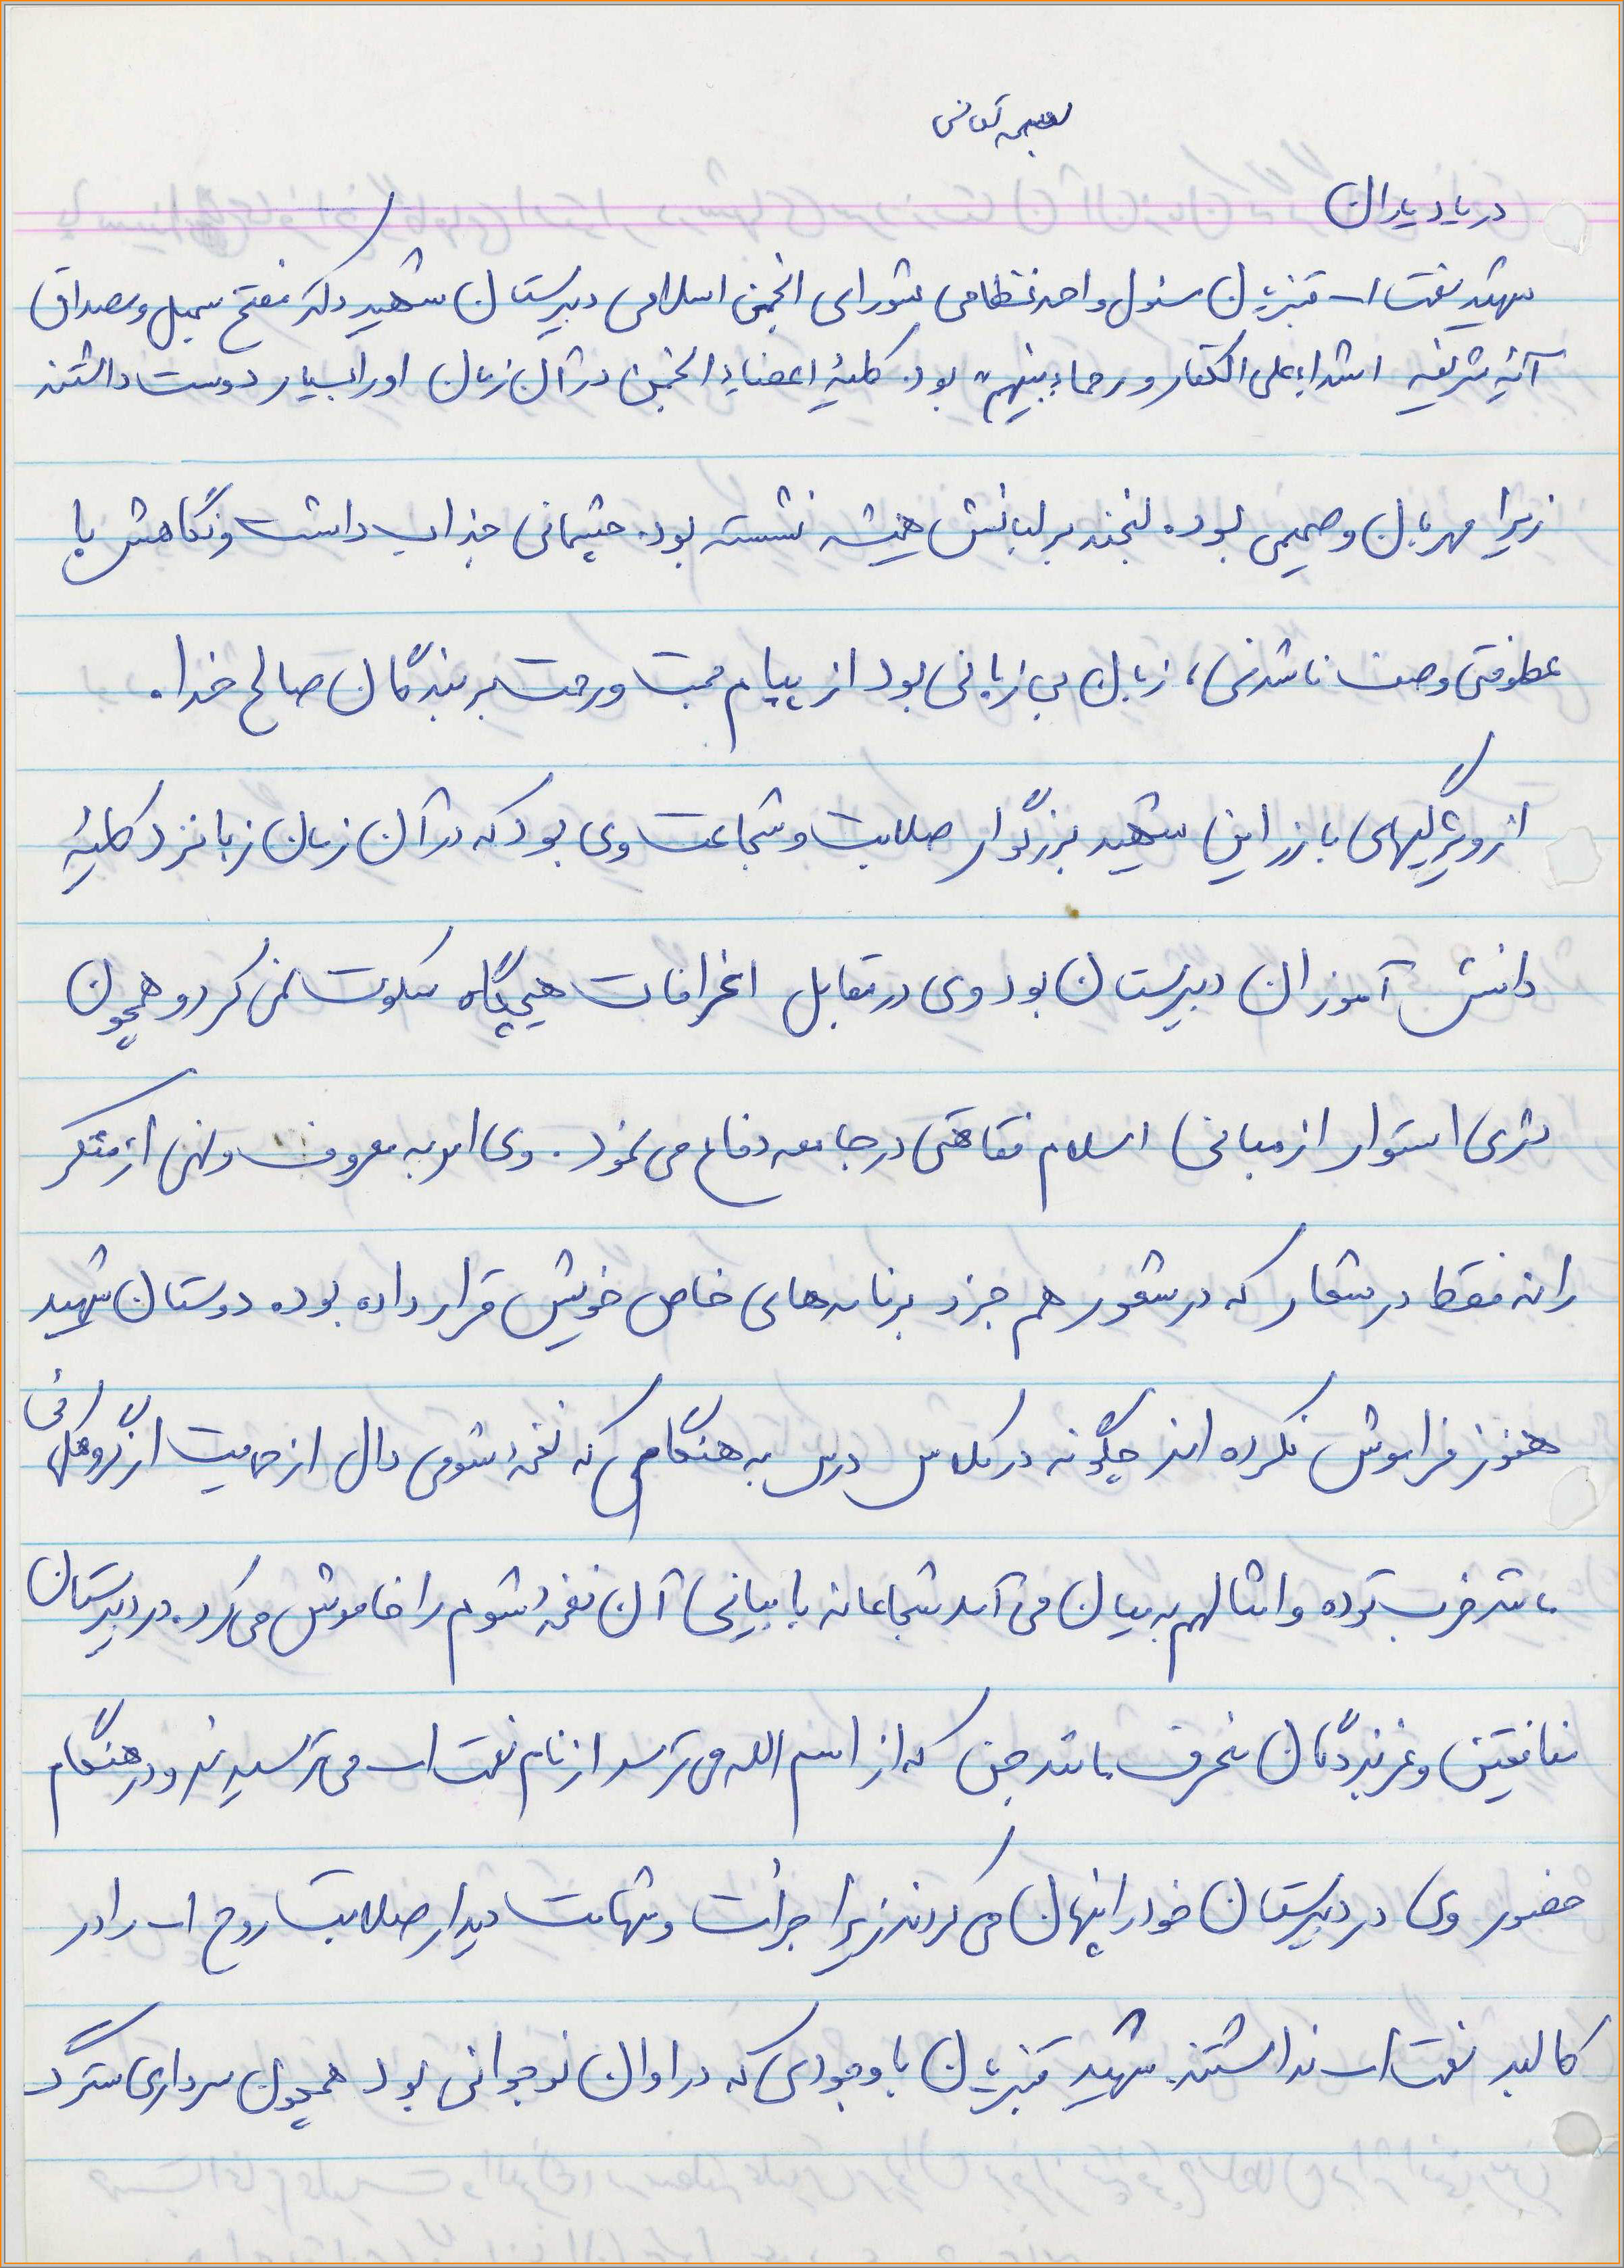 بسمه تعالی
در یاد یاران
شهید نعمت اله قنبریان مسئول واحد نظامی شورای انجمن اسلامی دبیرستان شهید دکتر مفتح سمبل و مصداق
آیهٔ شریفه اشداء علی الکفار و رحماء بینهم" بود. کلیهٔ اعضاء انجمن در آن زمان او را بسیار دوست داشتند
زیرا مهربان و صمیمی بود. لبخند بر لبانش همیشه نشسته بود. چشمانی جذاب داشت و نگاهش با
عطوفتی وصف ناشدنی، زبان بی زبانی بود از پیام محبت و رحمت بر بندگان صالح خدا.
از ویژگیهای بارز این شهید بزرگوار صلابت و شجاعت وی بود که در آن زمان زبانزد کلیهٔ
دانش آموزان دبیرستان بود وی در مقابل انحرافات هیچگاه سکوت نمی کرد و همچون
سدی استوار از مبانی اسلام فقاهتی در جامعه دفاع می نمود. وی امر به معروف و نهی از منکر
را نه فقط در شعار که در شعور هم جزء برنامه های خاص خویش قرار داده بود. دوستان شهید
هنوز فراموش نکرده اند چگونه در کلاس درس به هنگامی که نغمهٔ شومی دال از حمایت از گروهکهائی
مانند حزب توده و امثالهم به میان می آمد شجاعانه با بیانی آن نغمهٔ شوم را خاموش می کرد. در دبیرستان
منافقین و غربزدگان منحرف مانند جن که از اسم الله می ترسد از نام نعمت اله می ترسیدند و در هنگام
حضور وی در دبیرستان خود را پنهان می کردند زیرا جرأت و شهامت دیدار صلابت روح اله را در
کالبد نعمت اله نداشتند. شهید قنبریان با وجودی که در اوان نوجوانی بود همچون سرداری سترگ